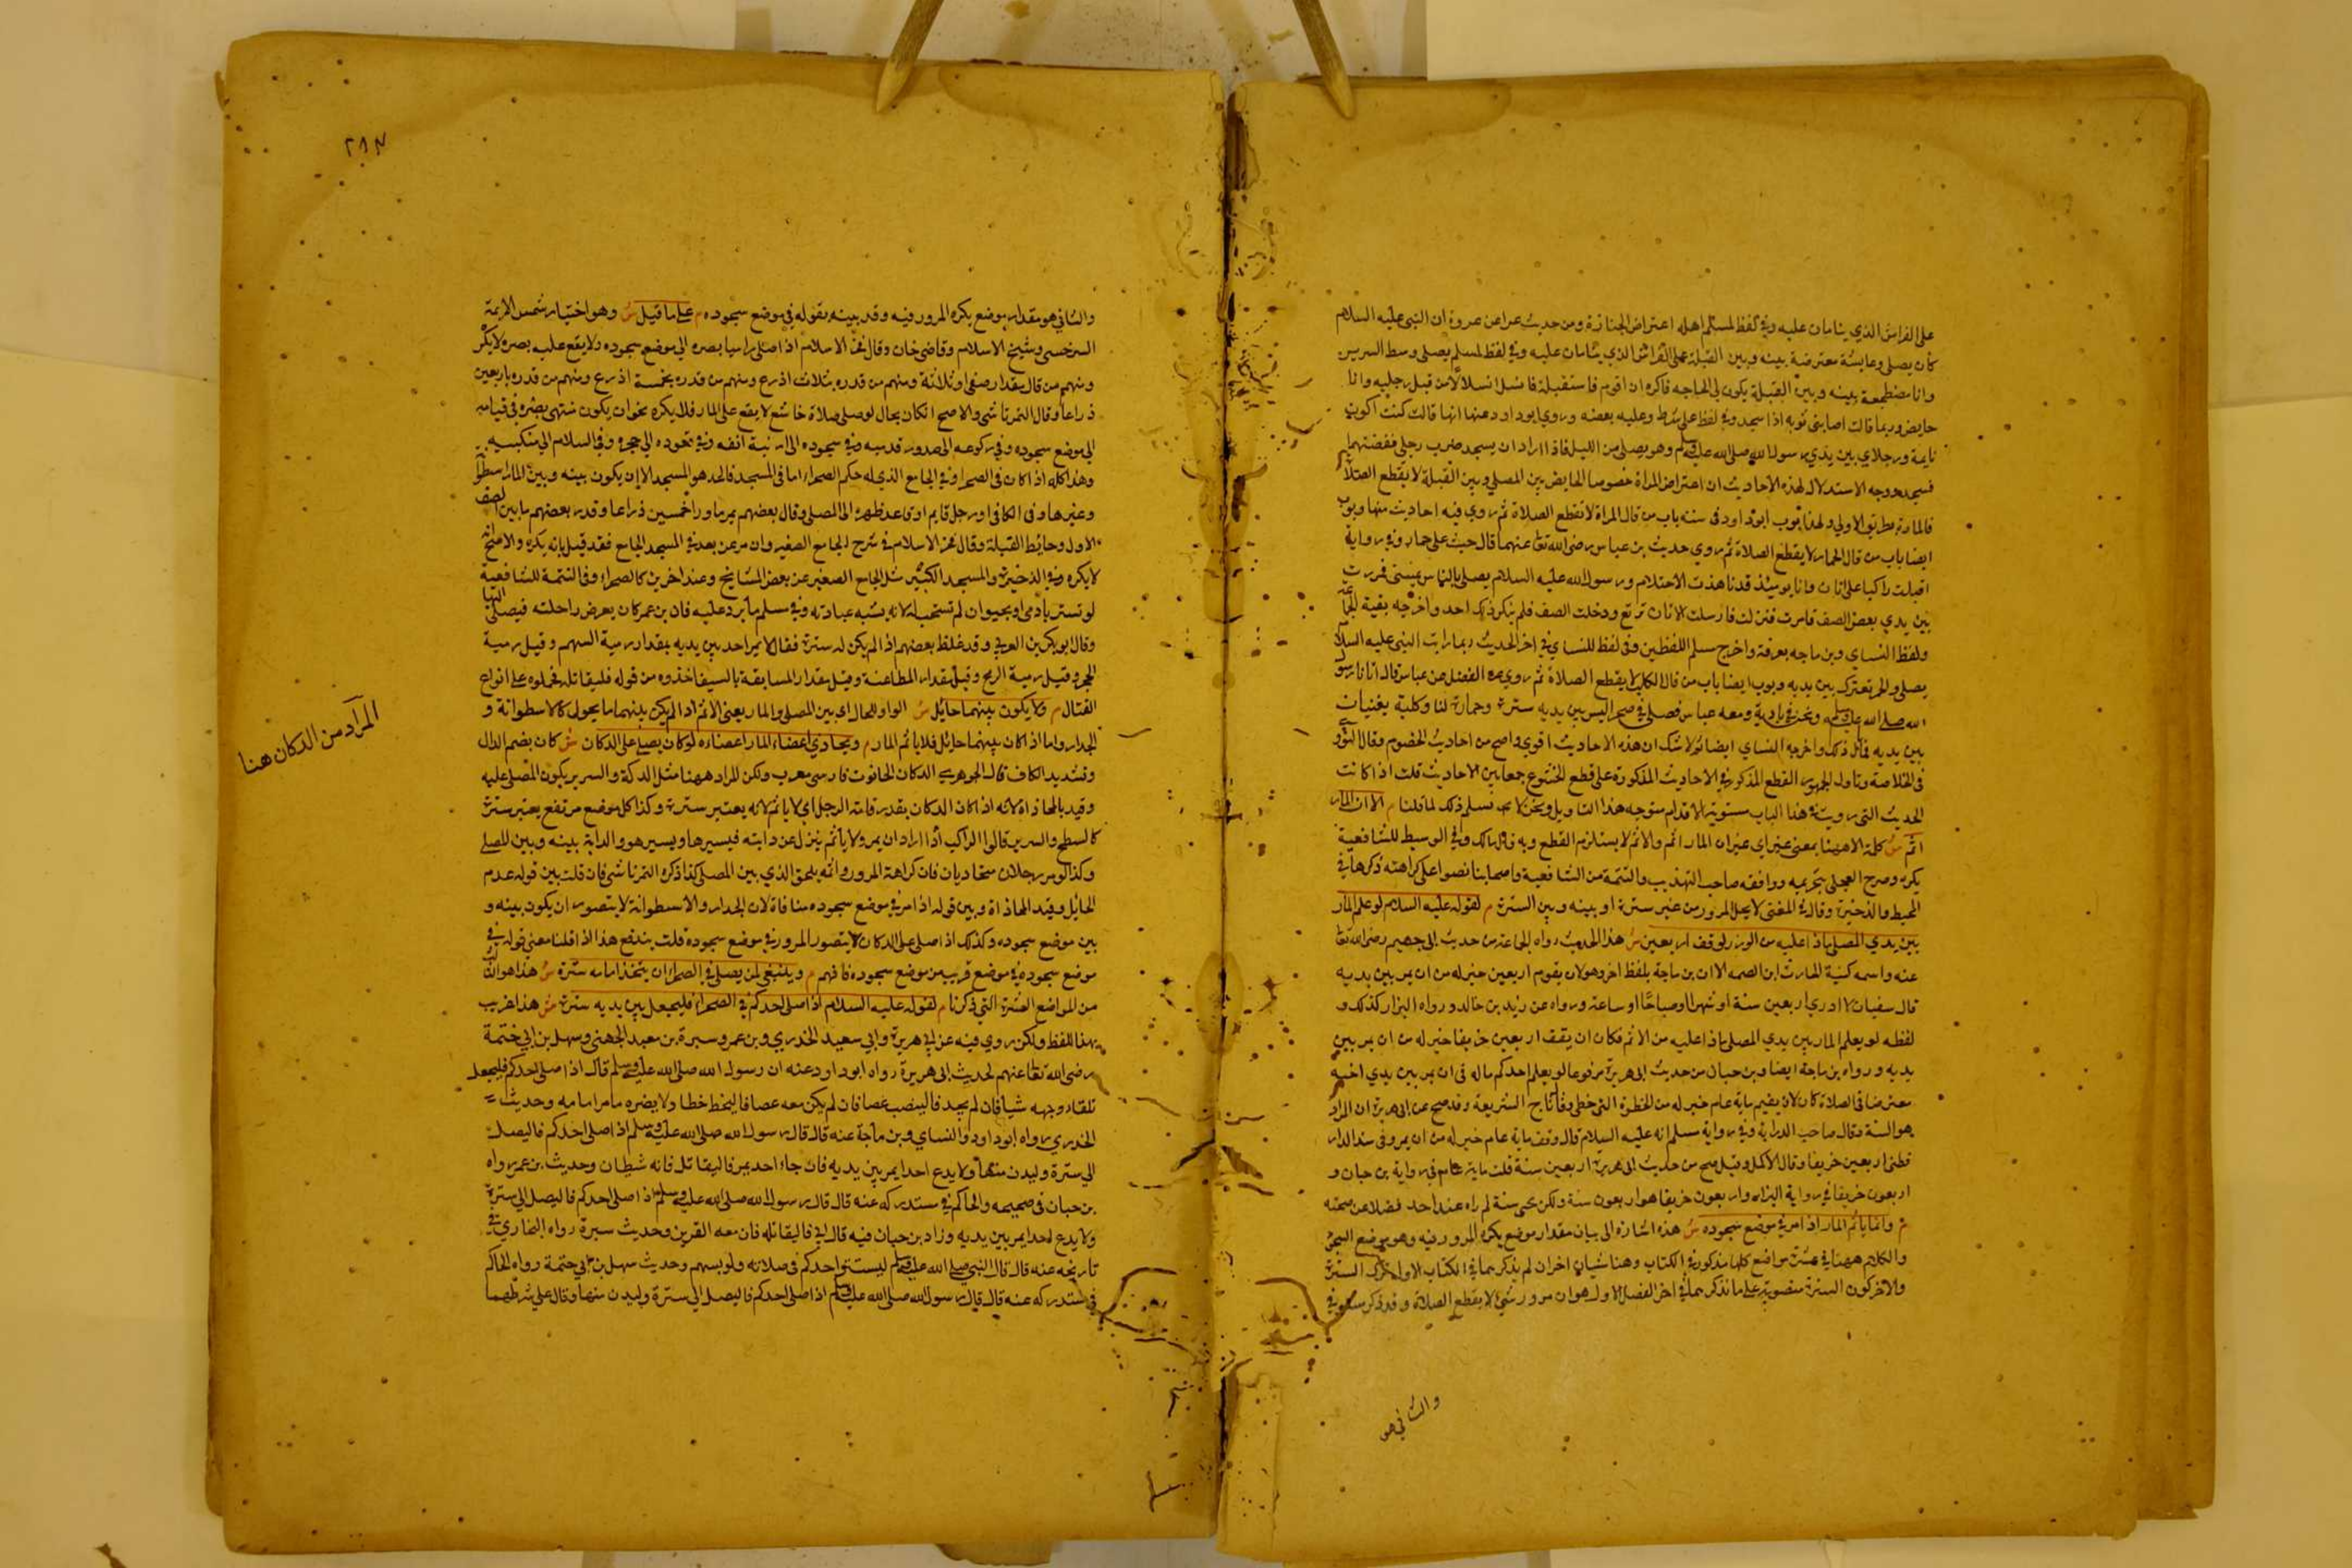 على الفراش الذي ينامان عليه وفي لفظ لمسلم اهله اعتراض الجنازة ومن حديث عراعن عروة ان النبي عليه السلام
كان يصلي وعايشة معترضة بينه وبين القبلة على الفراش الذي ينامان عليه وفي لفظ لمسلم يصلي وسط السرير
وانا مضطجعة بينه وبين القبلة يكون لي الحاجه فاكره ان اقوم فاستقبله فانسل انسلالا من قبل رجليه وانا
حايض وربما قالت اصابني ثوبه اذا سجد وفي لفظ على مرط وعليه بعضه وروي ابو داود عنها انها قالت كنت اكون
نايمة ورجلاي بين يدي رسول الله صلى الله عليه وسلم وهو يصلي من الليل فاذا اراد ان يسجد ضرب رجلي فقبضتهما
فسجد ووجه الاستدلال لهذه الاحاديث ان اعتراض المراة خصوصا الحايض بين المصلي وبين القبلة لا يقطع الصلاة
فالمارة بطريق الاولي ولهذا بوب ابو داود في سننه باب من قال المراة لا تقطع الصلاة ثم روي فيه احاديث منها وبوب
ايضا باب من قال الحمار لا يقطع الصلاة ثم روي حديث بن عباس رضي الله تعا عنهما قال جيت على حمار وفي رواية
اقبلت راكبا على اتان وانا يوميذ قد ناهذت الاحتلام ورسول الله عليه السلام يصلي بالناس بمني فمررت
بين يدي بعض الصف فامرت فنزلت فارسلت الاتان ترتع ودخلت الصف فلم ينكر ذلك احد واخرجه بقية الجماعة
ولفظ النساي وبن ماجه بعرفة واخرج مسلم اللفظين وفي لفظ للنساي في اخر الحديث ربما رايت النبي عليه السلام
يصلي والحمر تعترك بين يديه وبوب ايضا باب من قال الكلب لا يقطع الصلاة ثم روي عن الفضل بن عباس قال اتانا رسول
الله صلى الله عليه وسلم ونحن في بادية ومعه عباس فصلي في صحرا ليس بين يديه سترة وحمارة لنا وكلبة يعبثان
بين يديه فما بال ذلك واخرجه النساي ايضا ولا شك ان هذه الاحاديث اقوي واصح من احاديث الخصوم وقال النووي
في الخلاصة وتاول الجمهور القطع المذكور في الاحاديث المذكورة على قطع الخشوع جمعا بين الاحاديث قلت اذا كانت
الحديث التي رويت في هذا الباب مستوية الاقدام متوجه هذا التاويل ونحن لا نسلم ذلك لما قلنا م الا ان المار
اثم ش كلمة الا ههنا بمعني غير اي غير ان المار اثم والاثم لا يستلزم القطع وبه قال مالك وفي الوسيط للشافعية
يكره وصرح العجلي بتحريمه ووافقه صاحب التهذيب والتتمة من الشافعية واصحابنا نصوا على كراهته ذكرها في
المحيط والذخيرة وقال في المغني لا يحل المرور من غير سترة او بينه وبين السترة م لقوله عليه السلام لو علم المار
بين يدي المصلي ماذا عليه من الوزر لوقف اربعين ش هذا الحديث رواه الجماعة من حديث ابي جهيم رضي الله تعا
عنه واسمه كنية الحارث ابن الصمه الا ان بن ماجة بلفظ اخر وهو لان يقوم اربعين خير له من ان يمر بين يديه
قال سفيان لا ادري اربعين سنة او شهرا او صباحا او ساعة ورواه عن زيد بن خالد ورواه البزار كذلك و
لفظه لو يعلم المار بين يدي المصلي ماذا عليه من الاثم فكان ان يقف اربعين خريفا خير له من ان يمر بين
يديه ورواه بن ماجة ايضا وبن حبان من حديث ابي هريرة مرفوعا لو يعلم احدكم ماله في ان يمر بين يدي اخيه
معترضا في الصلاة كان لان يقيم ماية عام خير له من الخطوة التي خطي وقال تاج الشريعة وقد صح عن ابي هريرة ان المراد
هو السنة وقال صاحب الدراية وفي رواية مسلم انه عليه السلام قال وقف ماية عام خير له من ان يمر وفي سند الدار
قطني اربعين خريفا وقال الاكمل وقيل صح من حديث ابي هريرة اربعين سنة قلت ماية عام في رواية بن حبان و
اربعون خريفا في رواية البزار واربعون خريفا هو اربعون سنة ولكن حي سنة لم راه عند احد فضلا عن صحته
م وانما ياثم المار اذا مر في موضع سجوده ش هذه اشارة الى بيان مقدار موضع يكره المرور فيه وهو موضع السجود
والكلام ههنا في عشرة مواضع كلها مذكورة في الكتاب وهنا شيان اخران لم يذكر بما في الكتاب الاول ترك السترة
والاخر كون السترة مغصوبة على ما نذكر بما في اخر الفصل الاول هو ان مرور شئ لا يقطع الصلاة وقد ذكر مستوفي
والثاني هو
٢١٣
والثاني هو مقدار موضع يكره المرور فيه وقد بينه بقوله في موضع سجوده م على ما قيل ش وهو اختيار شمس الايمة
السرخسي وشيخ الاسلام وقاضي خان وقال فخر الاسلام اذا صلي راميا بصره الي موضع سجوده ولا يقع عليه بصره لا يكره
ومنهم من قال بمقدار صفين او ثلاثة ومنهم من قدره بثلاث اذرع ومنهم من قدره بخمسة اذرع ومنهم من قدره باربعين
ذراعا وقال التمرتاشي والاصح ان كان بحال لو صلي صلاة خاشع لا يقع على المار فلا يكره نحو ان يكون منتهي بصره في قيامه
الي موضع سجوده وفي ركوعه الى صدور قدميه وفي سجوده الى ارنبة انفه وفي قعوده الي حجره وفي السلام الي منكبيه
وهذا كله اذا كان في الصحرا وفي الجامع الذي له حكم الصحراء اما في المسجد فالحد هو المسجد الا ان يكون بينه وبين المار اسطوانة
وغيرها وفي الكافي او رجل قايم او قاعد ظهره الى المصلي وقال بعضهم يمر ما ورا خمسين ذراعا وقدر بعضهم ما بين الصف
الاول وحايط القبلة وقال فخر الاسلام في شرح الجامع الصغير وان مر عن بعد في المسجد الجامع فقد قيل بانه يكره والاصح انه
لا يكره وفي الذخيرة والمسجد الكبير مثل الجامع الصغير عن بعض المشايخ وعند اخرين كالصحراء وفي التتمة للشافعية
لو تستر بادمي او بحيوان لم تستحب له لانه يشبه عبادته وفي مسلم ما يرد عليه فان بن عمر كان يعرض راحلته فيصلي اليها
وقال ابو بكر بن العربي وقد غلظ بعضهم اذا لم يكن له سترة فقال لا يمر احد بين يديه بمقدار رمية السهم وقيل رمية
الحجر وقيل رمية الرمح وقيل بمقدار المطاعنة وقيل بمقدار المسابقة بالسيف اخذوه من قوله فليقاتله فحملوه على انواع
القتال م ولا يكون بينهما حايل ش الواو للحال اي بين المصلي والمار يعني الاثم اذا لم يكن بينهما ما يحول كالاسطوانة و
الجدار واما اذا كان بينهما حايل فلا ياثم المار م ويحاذي اعضاء المار اعضاءه لو كان يصلي على الدكان ش كان بضم الدال
وتشديد الكاف قال الجوهري الدكان الحانوت فارسي معرب ولكن المراد ههنا مثل الدكة والسرير يكون المصلي عليه
وقيد بالمحاذاة لانه اذا كان الدكان بقدر قامة الرجل اي لا ياثم لانه يعتبر سترة وكذا كل موضع مرتفع يعتبر سترة
كالسطح والسرير قالوا الراكب اذا اراد ان يمر ولا ياثم ينزل عن دابته فيسيرها ويسير هو والدابة بينه وبين المصلي
وكذا لو مر رجلان متحاذيان فان كراهة المرور واثمه يلحق الذي بين المصلي كذا ذكره التمرتاشي فان قلت بين قوله عدم
الحايل وقيد المحاذاة وبين قوله اذا مر في موضع سجوده منافاة لان الجدار والاسطوانة لا يتصور ان يكون بينه و
بين موضع سجوده وكذلك اذا صلي على الدكان لا يتصور المرور في موضع سجوده قلت يندفع هذا اذا قلنا معني قوله في
موضع سجوده في موضع قريب من موضع سجوده فافهم م وينبغي لمن يصلي في الصحراء ان يتخذ امامه سترة ش هذا هو الثالث
من المواضع العشرة التي ذكرنا م لقوله عليه السلام اذا صلي احدكم في الصحراء فليجعل بين يديه سترة ش هذا غريب
بهذا اللفظ ولكن روي فيه عن ابي هريرة وابي سعيد الخدري وبن عمر وسبرة بن معبد الجهني وسهل بن ابي حثمة
رضي الله تعا عنهم لحديث ابي هريرة رواه ابو داود عنه ان رسول الله صلى الله عليه وسلم قال اذا صلي احدكم فليجعل
تلقاء وجهه شيا فان لم يجد فالينصب عصا فان لم يكن معه عصا فاليخط خطا ولا يضره ما مر امامه وحديث
الخدري رواه ابو داود والنساي وبن ماجة عنه قال قال رسول الله صلى الله عليه وسلم اذا صلي احدكم فاليصل
الي سترة وليدن منها ولا يدع احدا يمر بين يديه فان جاء احد يمر فاليقاتله فانه شيطان وحديث بن عمر رواه
بن حبان في صحيحه والحاكم في مستدركه عنه قال قال رسول الله صلى الله عليه وسلم اذا صلي احدكم فاليصل الي سترة
ولا يدع احدا يمر بين يديه وزاد بن حبان فيه قال ابي فاليقاتله فان معه القرين وحديث سبرة رواه البخاري في
تاريخه عنه قال قال النبي صلى الله عليه وسلم ليستتر احدكم في صلاته ولو بسهم وحديث سهل بن ابي حثمة رواه الحاكم
في مستدركه عنه قال قال رسول الله صلى الله عليه وسلم اذا صلي احدكم فاليصل الي سترة وليدن منها وقال علي شرطهما
المراد من الدكان هنا